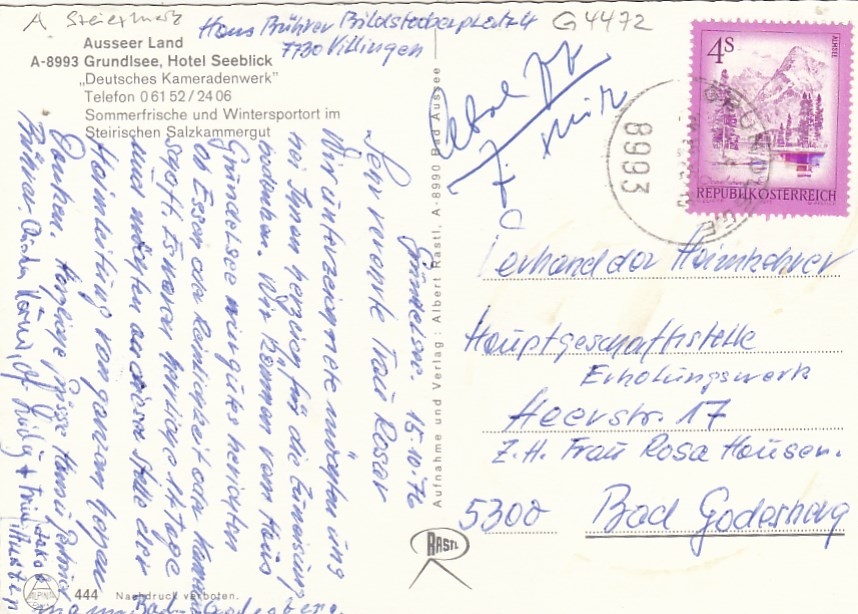 A Steiermark
Hans Bührer Bildstockerplatz 4
7730 Villingen
G 4472
Ausseer Land
A-8993 Grundlsee, Hotel Seeblick
„Deutsches Kameradenwerk"
Telefon 0 61 52 / 24 06
Sommerfrische und Wintersportort im
Steirischen Salzkammergut
4S
ALMSEE
REPUBLIK ÖSTERREICH
8993
Grundlsee. 15.10.76
Sehr verehrte Frau Rosar
Wir unterzeichnete möchten uns
bei Ihnen herzlich für die Einweisung
bedanken. Wir können vom Haus
Grundelsee nur gutes berichten
ob Essen oder Reinlichkeit oder Kamerad
schaft. Es waren herrliche 14 Tage
und möchten an dieser Stelle der
Heimleitung von ganzem Herzen
Danken. Herzliche Grüsse Hans u. Gertrud
Bührer.
Verband der Heimkehrer
Hauptgeschäftsstelle
Erholungswerk
Heerstr. 17
Z.H. Frau Rosa Hausen.
5300 Bad Godesberg
Aufnahme und Verlag: Albert Rastl, A-8990 Bad Aussee
RASTL
ALPINA
444 Nachdruck verboten.